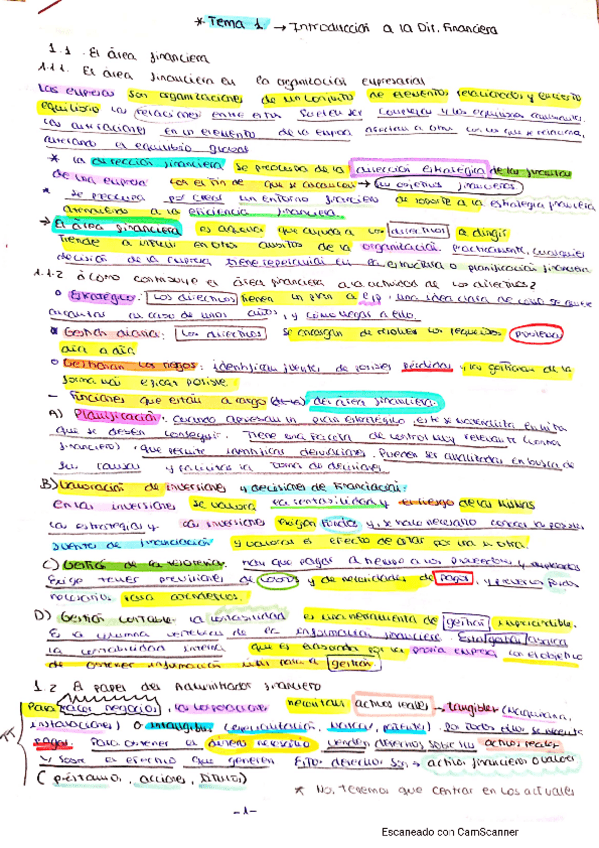 * Tema 1 → Introducción a la Dir. Financiera
1.1 El área financiera
1.1.1. El área financiera en la organización empresarial
Las empresas son organizaciones de un conjunto de elementos relacionados y en cierto
equilibrio. Las relaciones entre estos suelen ser complejas y los equilibrios cambiantes.
Las variaciones en un elemento de la empresa afectan a otros con los que se relaciona,
alterando el equilibrio general
* La dirección financiera se preocupa de la dirección estratégica de las finanzas
de una empresa con el fin de que se alcancen → sus objetivos financieros
* Se preocupa por crear un entorno financiero de soporte a la estrategia financiera
a la eficiencia financiera.
→ El área financiera es aquella que ayuda a los directivos a dirigir.
Tiende a influir en otros ámbitos de la organización. Prácticamente, cualquier
decisión de la empresa tiene repercusión en la estructura o planificación financiera
1.1.2 ¿Cómo contribuye el área financiera a la actividad de los directivos?
o Estratégico: Los directivos tienen un plan a c/p, una idea clara de como se quiere
encontrar en caso de unos años, y cómo llegar a ello.
Gestión diaria: Los directivos se encargan de resolver los pequeños problemas
día a día.
o Gestionan los riesgos: identifican fuentes de posibles pérdidas y las gestionan de la
forma más eficaz posible.
- Funciones que están a cargo del área financiera.
A) Planificación: Cuando aprueban un plan estratégico, este se
que se deben conseguir. Tiene una faceta de control muy relevante (control
financiero) que permite identificar desviaciones. Pueden ser analizadas en busca de
sus causas y la toma de decisiones
B) Valoración de inversiones y decisiones de financiación:
en las inversiones se valora la rentabilidad y el riesgo de las mismas
Las estrategias y las inversiones exigen fondos y se hace necesario conocer la posible
fuente de financiación y valorar el efecto de optar por una u otra.
C) Gestión de la tesorería: hay que pagar a tiempo a los proveedores y empleados
Exige tener previsiones de cobros y de necesidades de pagos, y prever los fondos
necesarios para acometerlos.
D) Gestión contable: la contabilidad es una herramienta de gestión imprescindible.
Es la columna vertebral de la información financiera. Esta
la contabilidad interna que es elaborada por la propia empresa con el objetivo
de obtener información útil para la gestión.
1.2 El papel del Administrador financiero
Para hacer negocios, las corporaciones necesitan activos reales → tangibles (maquinaria,
instalaciones) o intangibles (marcas, patentes). Por todos ellos se necesita
pagar. Para obtener el dinero necesario venden derechos sobre los activos reales
y sobre el efectivo que generan. Estos derechos son → activos financieros o valores
(préstamos, acciones, bonos)
* No tenemos que centrar en los actuales
-1-
Escaneado con CamScanner